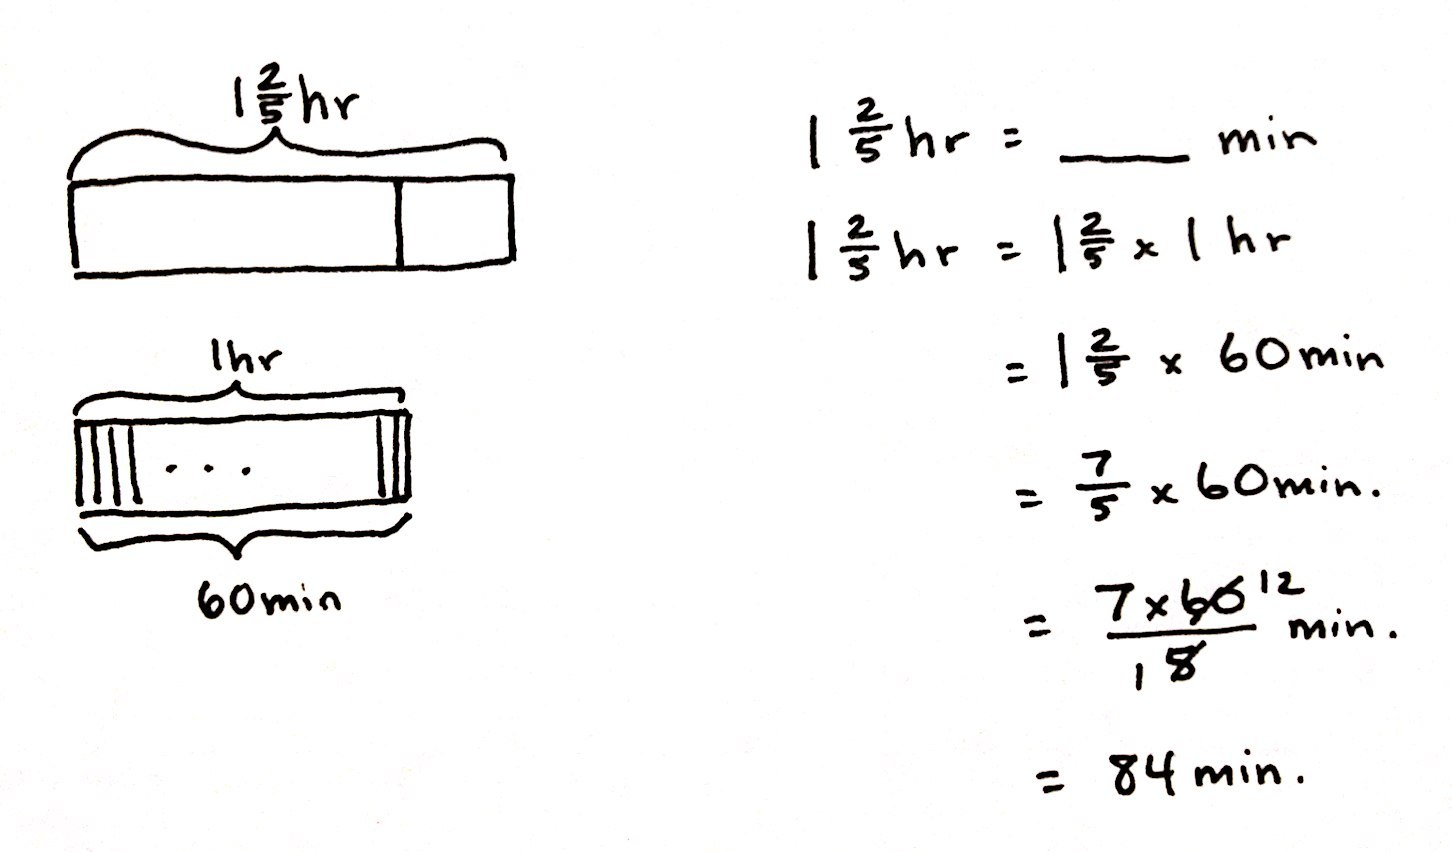 1 2/5 hr
1hr
60min
1 2/5 hr = ____ min
1 2/5 hr = 1 2/5 x 1 hr
= 1 2/5 x 60min
= 7/5 x 60min.
= 7 x 60 12 / 1 5 min.
= 84 min.